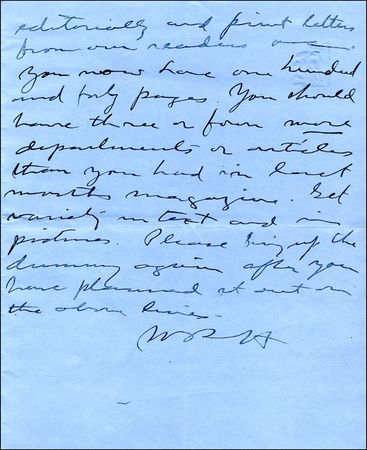 editorially and print letters
from our readers
You now have one hundred
and forty pages. You should
have three or four more
departments or articles
than you had in last
months magazine. Get
variety in text and in
pictures. Please bring up the
dummy again after you
have planned it out on
the above lines.
WRH